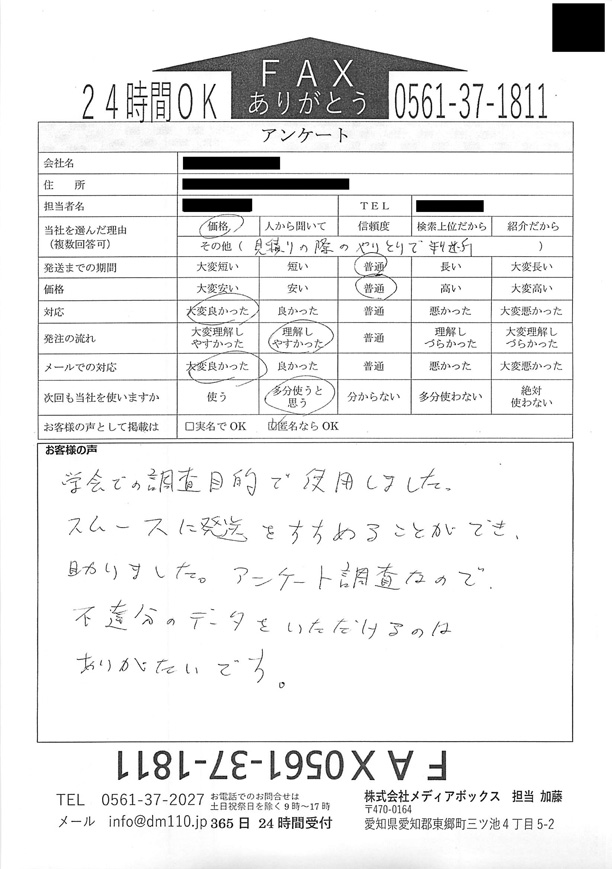 FAX
ありがとう
24時間OK
0561-37-1811
アンケート
会社名
住 所
担当者名 TEL
当社を選んだ理由
(複数回答可)
価格 人から聞いて 信頼度 検索上位だから 紹介だから
その他( 見積りの際のやりとりで判断 )
発送までの期間 大変短い 短い 普通 長い 大変長い
価格 大変安い 安い 普通 高い 大変高い
対応 大変良かった 良かった 普通 悪かった 大変悪かった
発注の流れ 大変理解しやすかった 理解しやすかった 普通 理解しづらかった 大変理解しづらかった
メールでの対応 大変良かった 良かった 普通 悪かった 大変悪かった
次回も当社を使いますか 使う 多分使うと思う 分からない 多分使わない 絶対使わない
お客様の声として掲載は □実名でOK ☑匿名ならOK
お客様の声
学会での調査目的で使用しました。
スムースに発送をすすめることができ、
助りました。アンケート調査なので、
不達分のデータをいただけるのは
ありがたいです。
FAX0561-37-1811
TEL 0561-37-2027 お電話でのお問合せは
土日祝祭日を除く9時~17時
メール info@dm110.jp 365日 24時間受付
株式会社メディアボックス 担当 加藤
〒470-0164
愛知県愛知郡東郷町三ツ池4丁目5-2